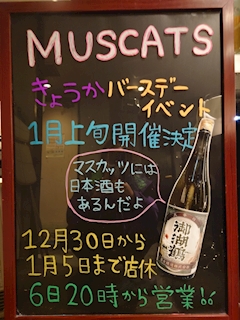 MUSCATS
きょうかバースデー
イベント
1月上旬開催決定
マスカッツには
日本酒も
あるんだよ
御湖鶴
12月30日から
1月5日まで店休
6日20時から営業!!